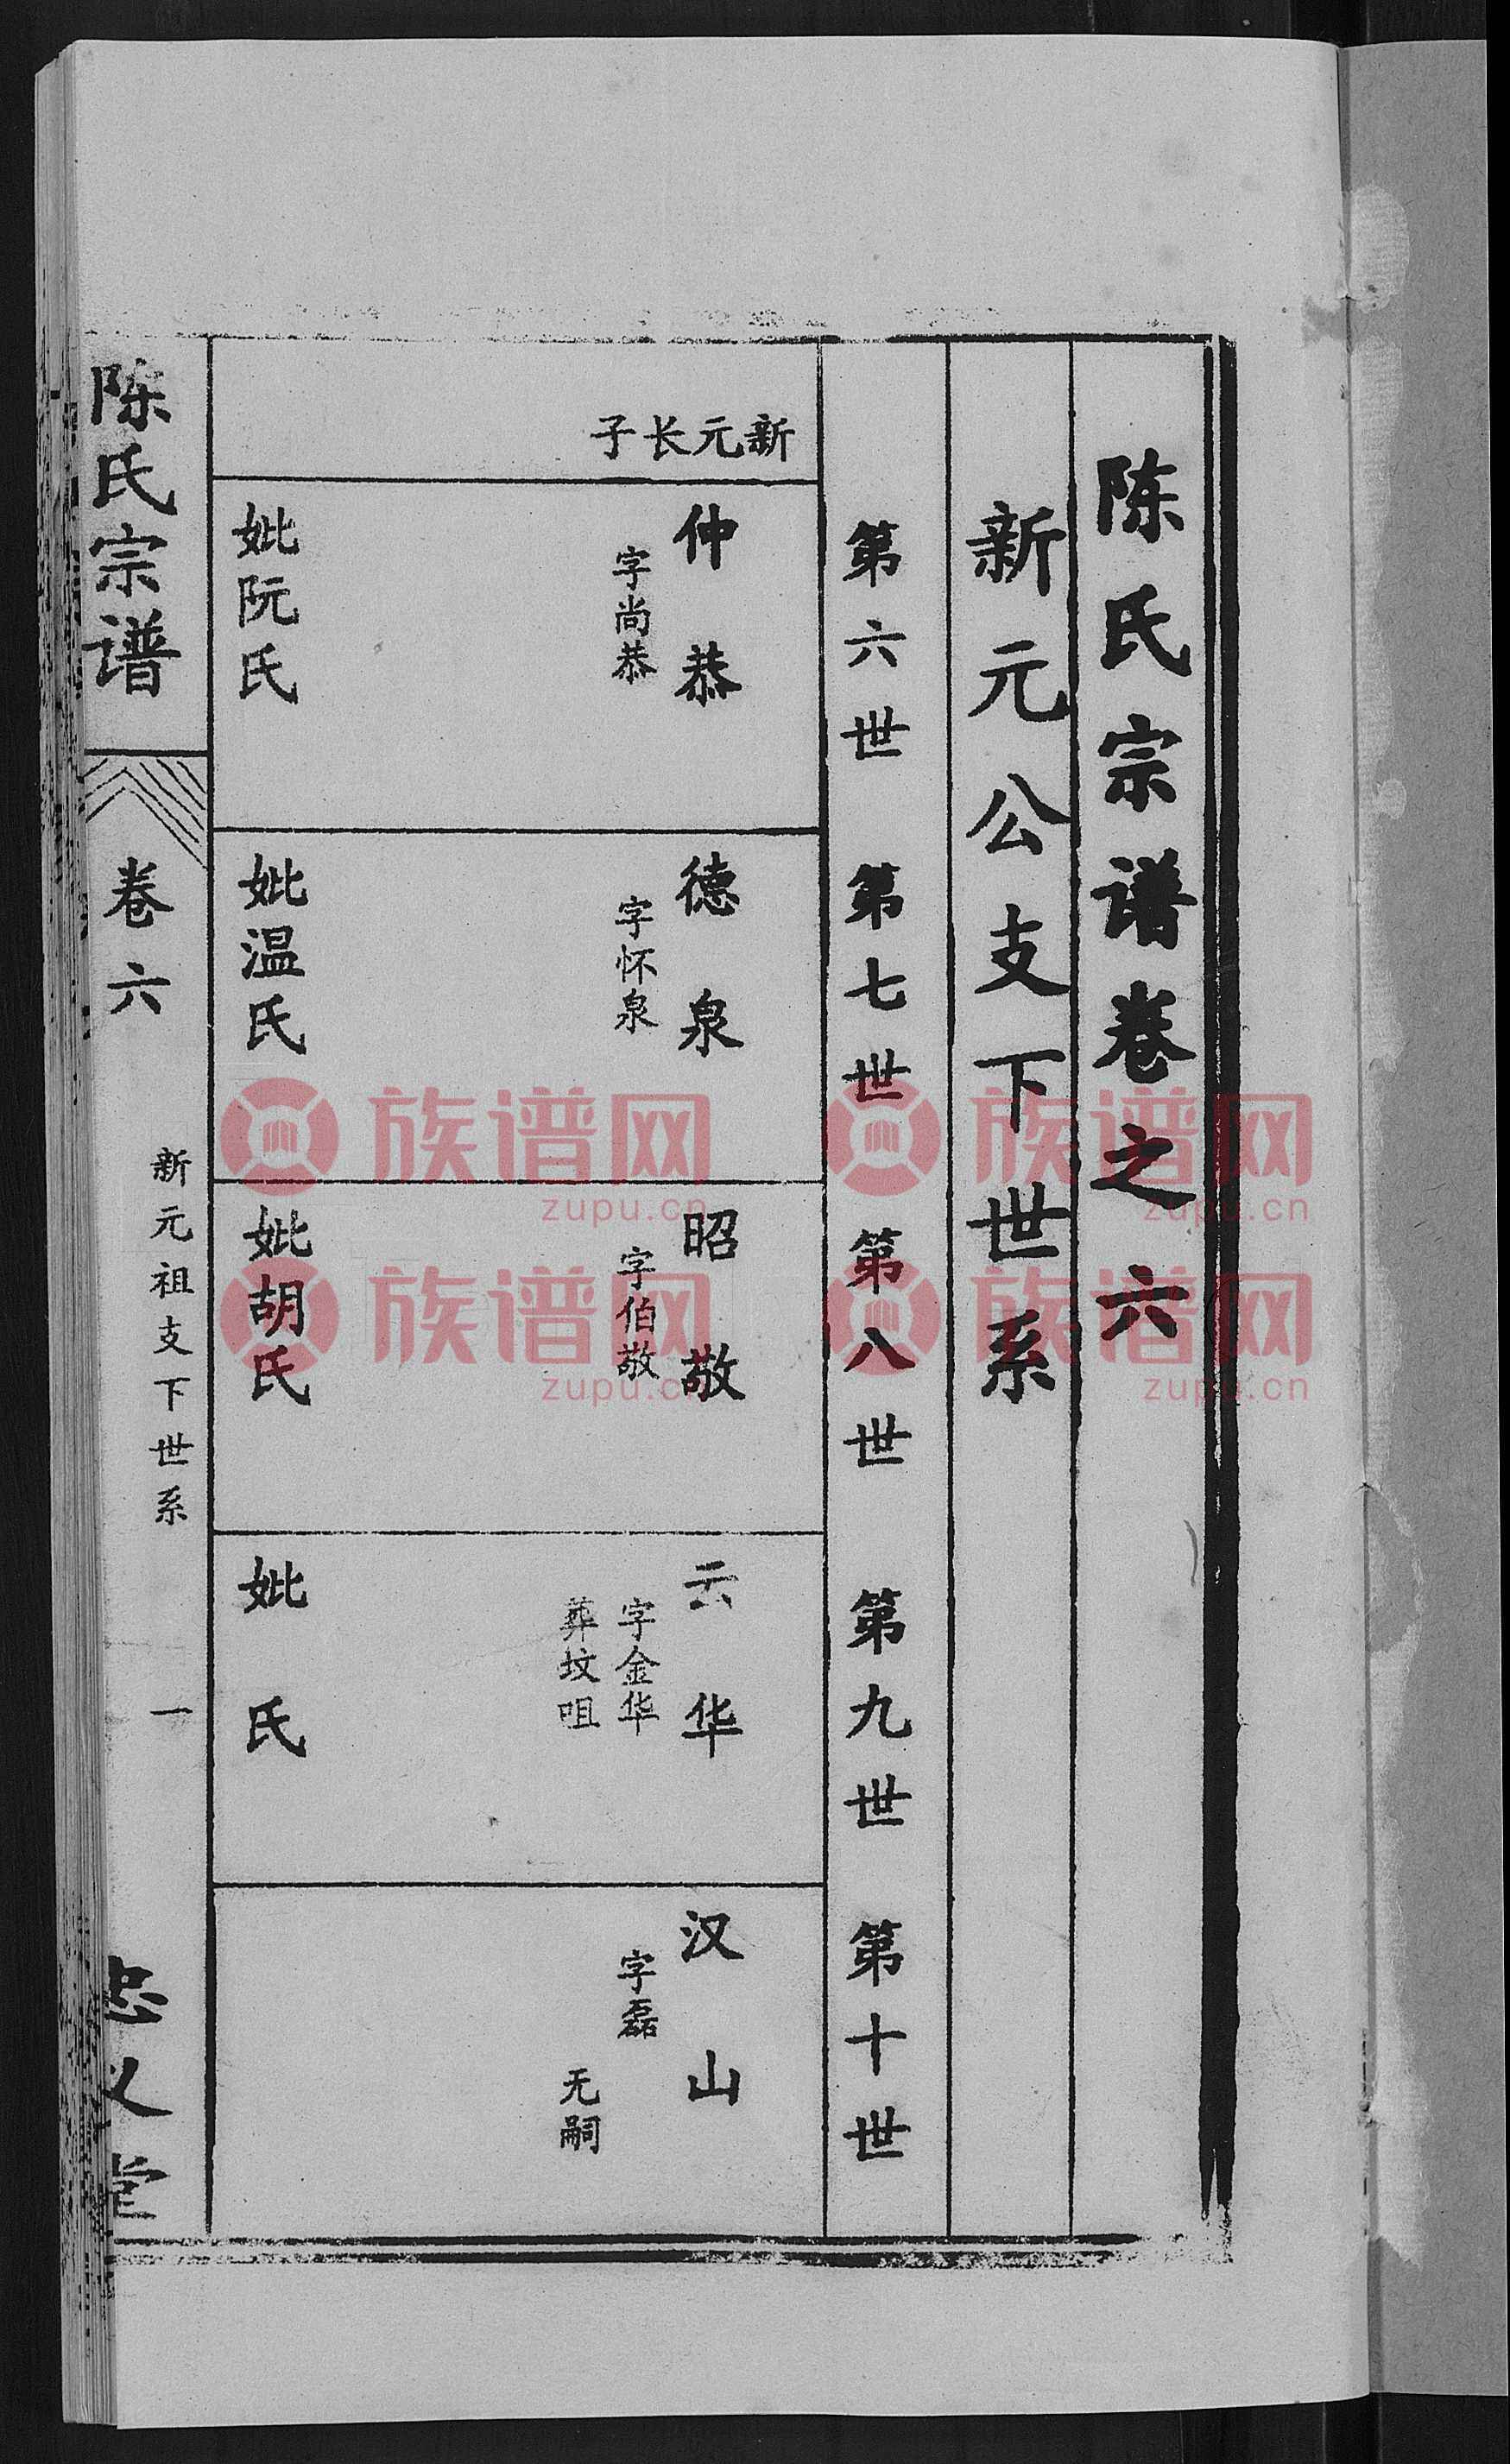 陈氏宗谱卷之六
新元公支下世系
第六世 第七世 第八世 第九世 第十世
新元长子
仲恭
字尚恭
妣阮氏
德泉
字怀泉
妣温氏
昭敬
字伯敬
妣胡氏
云华
字金华
葬坟咀
妣 氏
汉山
字磊
无嗣
陈氏宗谱
卷六
新元祖支下世系
一
忠义堂
族谱网
zupu.cn
族谱网
zupu.cn
族谱网
zupu.cn
族谱网
zupu.cn